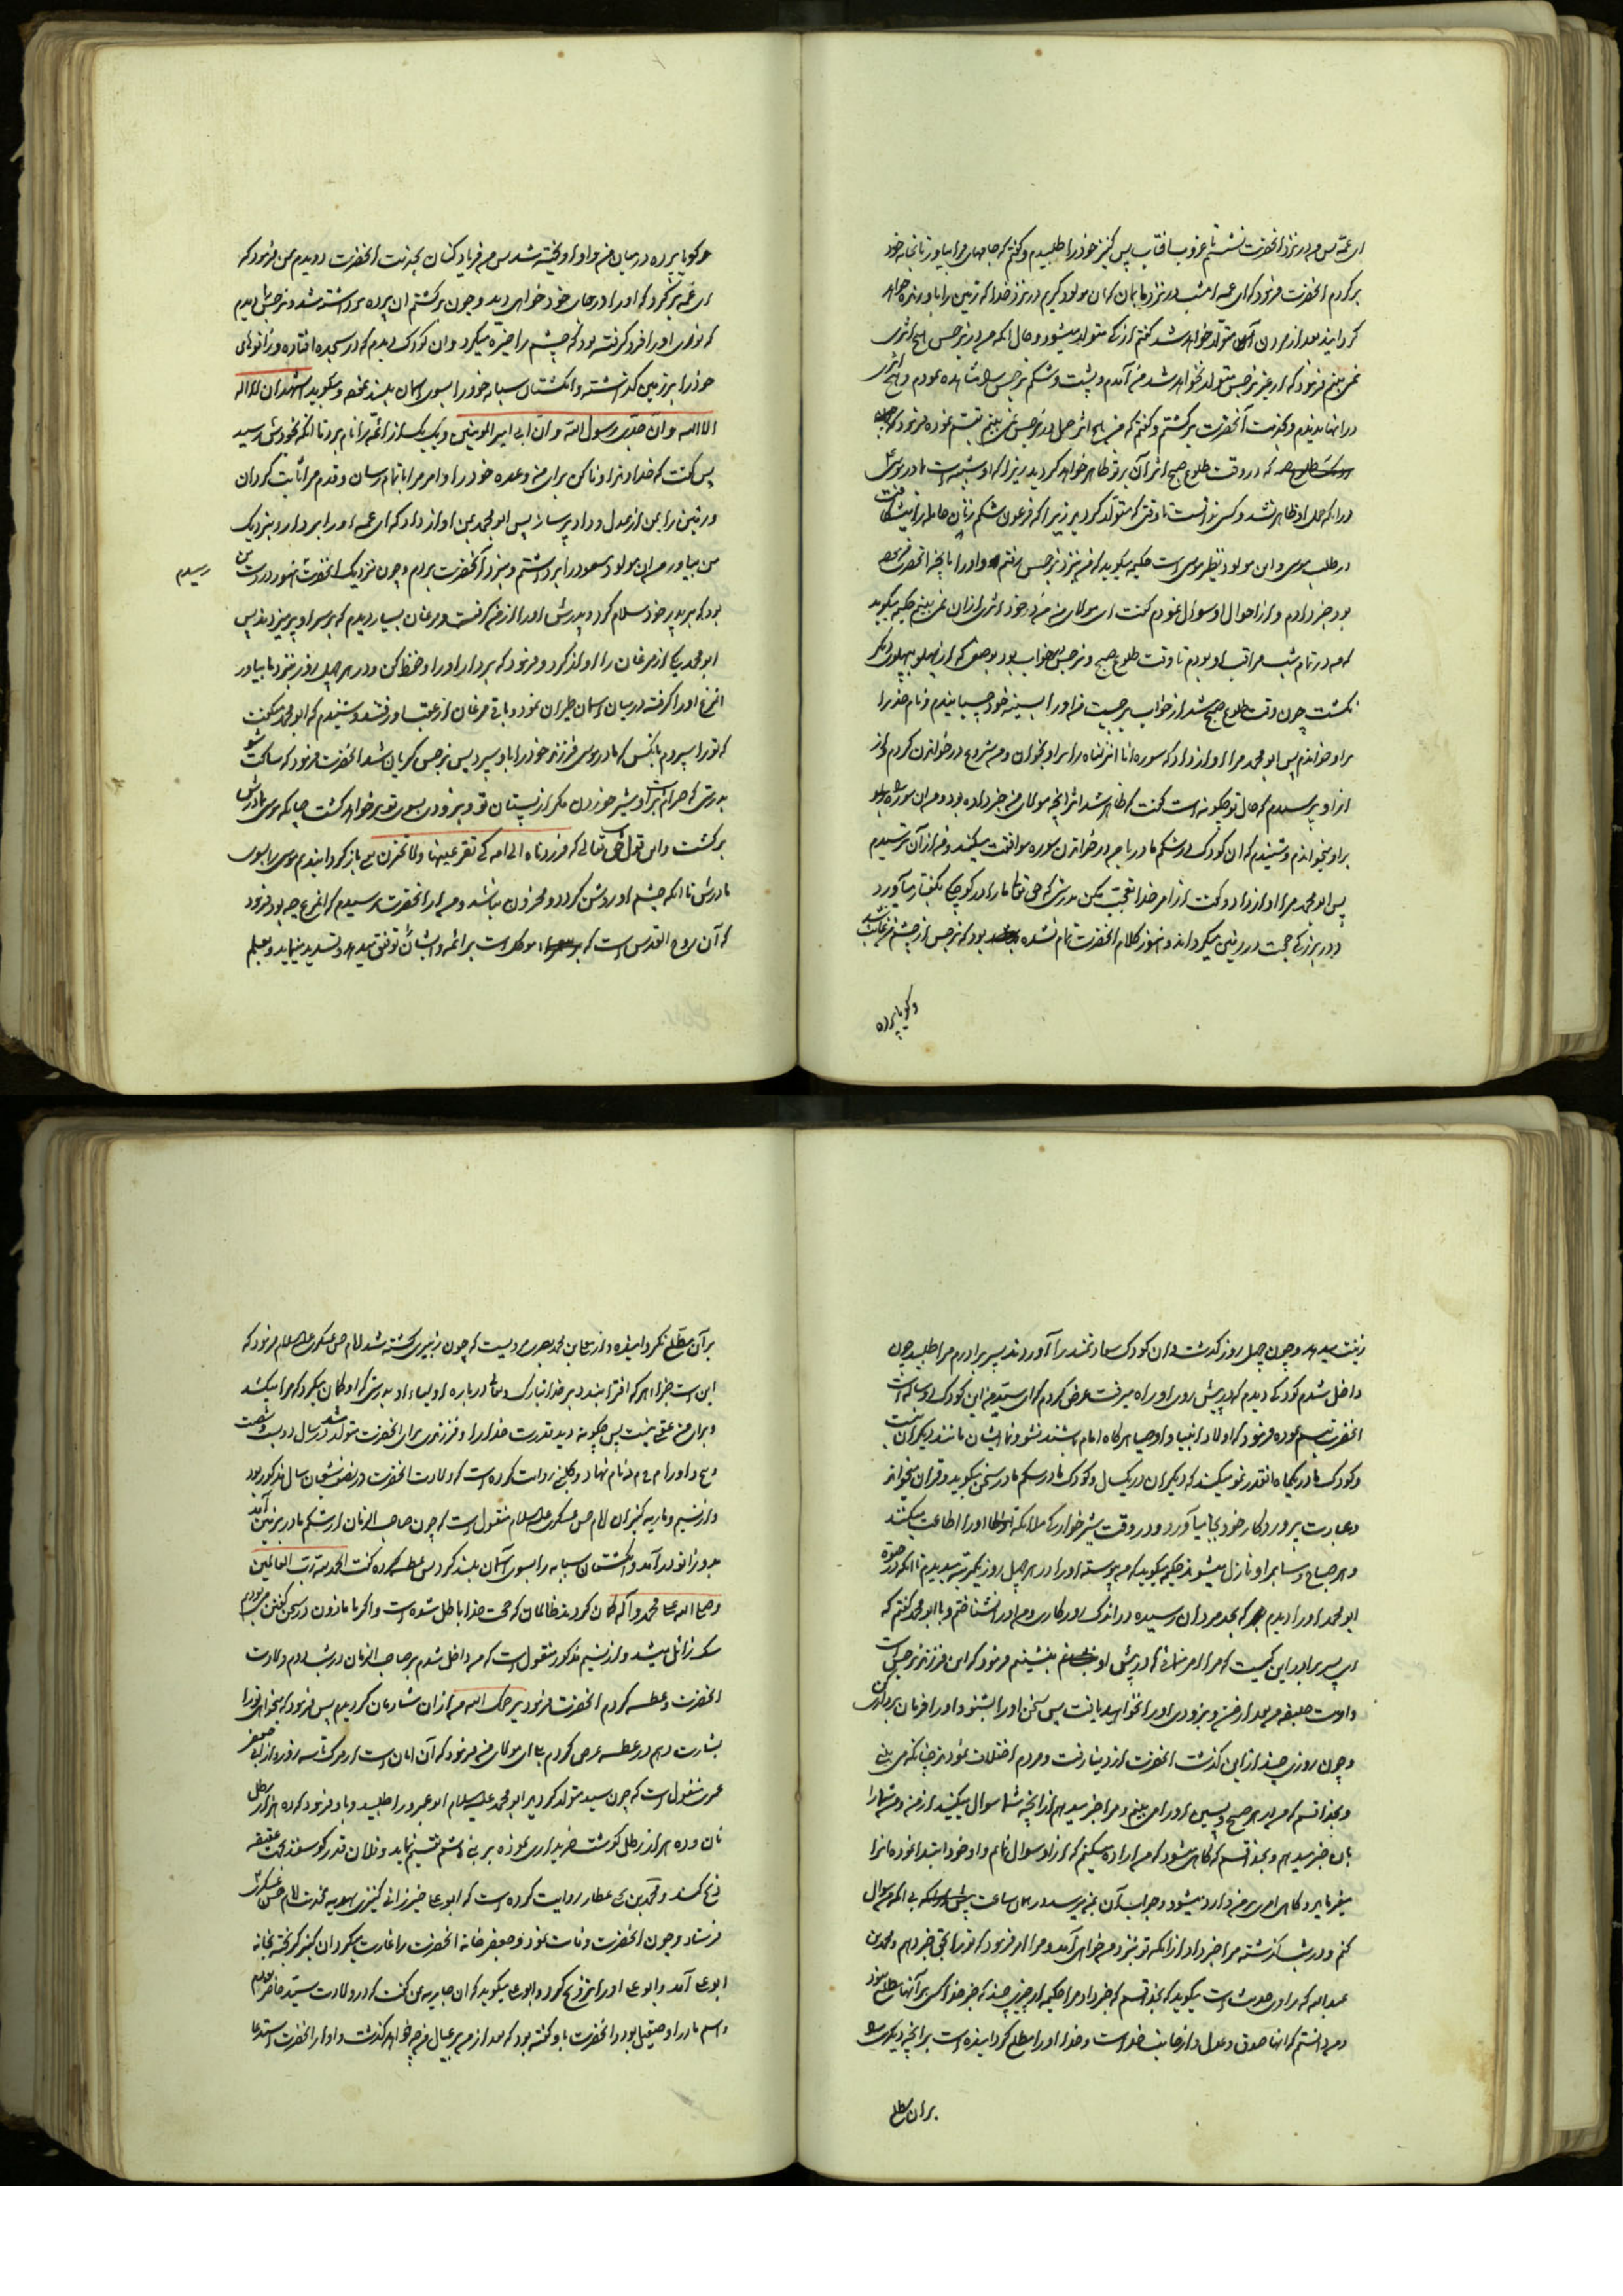 ای عمه پس من در نزد آنحضرت نشستم تا غروب آفتاب پس کنیز خود را طلبیدم و گفتم که جامهای مرا بیاور تا بخانه خود
برگردم آنحضرت فرمود که ای عمه امشب در نزد ما بمان که آن مولود کریم در نزد خدا که زمین را باو زنده خواهد
گردانید بعد از مردن آن متولد خواهد شد گفتم از که متولد میشود و حال آنکه من در نرجس هیچ اثری
نمی بینم فرمود که از غیر نرجس متولد نخواهد شد من آمدم و پشت و شکم نرجس را مشاهده نمودم و هیچ اثری
در آنها ندیدم و بخدمت آنحضرت برگشتم و گفتم که من هیچ اثر حمل در نرجس نمی بینم تبسم نموده فرمود که چون
که در وقت طلوع صبح اثر آن بر تو ظاهر خواهد گردید زیرا که او شبیه است مادر موسی
را که حمل او ظاهر نشد و کسی ندانست تا وقتی که متولد گردید زیرا که فرعون شکم زنان حامله را میشکافت
در طلب موسی و این مولود نظیر موسی است حکیمه میگوید که من بنزد نرجس رفتم و او را بآنچه آنحضرت فرموده
بود خبر دادم و از احوال او سوال نمودم گفت ای مولای من من در خود اثری از آن نمی بینم حکیمه میگوید
که من در تمام شب مراقب او بودم تا وقت طلوع صبح و نرجس در خواب بود بوضعی که از پهلو بپهلوی دیگر
نگشت چون وقت طلوع صبح شد از خواب برجست من او را بسینه خود چسبانیدم و نام خدا را
بر او خواندم پس ابو محمد مرا آواز داد که سوره انا انزلناه را بر او بخوان و من شروع در خواندن کردم و از
از او پرسیدم که حال تو چگونه است گفت که ظاهر شد اثر آنچه مولای من خبر داده بود و من آن سوره را
بر او میخواندم و شنیدم که آن کودک در شکم مادر با من در خواندن سوره موافقت میکند و من از آن ترسیدم
پس ابو محمد مرا آواز داد و گفت از امر خدا تعجب مکن بدرستی که حق تعالی ما را در کوچکی بگفتار میآورد
و در بزرگی حجت در زمین میگرداند و هنوز کلام آنحضرت تمام نشده بود که نرجس از چشم من غایب شد
و گویا پرده
و گویا پرده در میان من و او آویخته شد پس من فریاد کنان بخدمت آنحضرت دویدم بمن فرمود که
ای عمه برگرد که او را در جای خود خواهی دید و چون برگشتم آن پرده برداشته شد و نرجس را دیدم
که نوری او را فرو گرفته بود که چشم را خیره میکرد و آن کودک دیدم که در سجده افتاده و زانوهای
خود را بر زمین گذاشته و انگشتان سبابه خود را بسوی آسمان بلند نموده و میگوید اشهد ان لا اله
الا الله و ان جدی رسول الله و ان ابی امیر المومنین و یک یک از ائمه را نام برد تا آنکه بخودش رسید
پس گفت که خداوندا وفا کن برای من وعده خود را و امر مرا باتمام رسان و قدم مرا ثابت گردان
و زمین را بمن از عدل و داد پر ساز پس ابو محمد بمن آواز داد که ای عمه او را بردار و بنزدیک
من بیاور من آن مولود مسعود را برداشتم و بنزد آنحضرت بردم و چون نزدیک آنحضرت هنوز در دست من
رسیدم
بود که بر پدر خود سلام کرد و پدرش او را از من گرفت و مرغان بسیار دیدم که بر سر او پر میزدند پس
ابو محمد یکی از مرغان را آواز کرد و فرمود که بردار او را و حفظ کن و در هر چهل روز بنزد ما بیاور
آن مرغ او را گرفته در میان آسمان طیران نمود و باقی مرغان از عقب او رفتند و شنیدم که ابو محمد میگفت
که تو را سپردم بآنکس که مادر موسی فرزند خود را باو سپرد پس نرجس گریان شد آنحضرت فرمود که ساکت شو
بدرستی که حرام است بر او شیر خوردن مگر از پستان تو و بزودی بسوی تو بر خواهد گشت چنانکه موسی بمادرش
برگشت و این قول حق تعالی که فرددناه الی امه کی تقر عینها و لا تحزن یعنی باز گردانیدیم موسی را بسوی
مادرش تا آنکه چشم او روشن گردد و محزون نباشد و من از آنحضرت پرسیدم که این مرغ چه بود فرمود
که آن روح القدس است که موکل است بر ائمه و ایشان را توفیق میدهد و تسدید مینماید و بعلم
زینت میدهد و چون چهل روز گذشت و آن کودک سعادتمند را آوردند پسر برادرم مرا طلبید چون
داخل شدم کودکی دیدم که در پیش روی او راه میرفت عرض کردم که ای سید من این کودک دو ساله است
آنحضرت تبسم نموده فرمود که اولاد انبیا و اوصیا هرگاه امام باشند نشو و نمای ایشان مانند دیگران نیست
و کودک ما در یکماه آنقدر نمو میکند که دیگران در یکسال و کودک ما در شکم مادر سخن میگوید و قرآن میخواند
و عبادت پروردگار خود بجا میآورد و در وقت شیر خوارگی ملائکه او را اطاعت میکنند
و هر صباح و شام بر او نازل میشوند حکیمه میگوید که من پیوسته او را در هر چهل روز یکمرتبه میدیدم تا آنکه در حیوة
ابو محمد او را دیدم که بحد مردان رسیده در اندک روزگاری و من او را نشناختم و با ابو محمد گفتم که
ای پسر برادر این کیست که مرا امر میکنی که در پیش او بنشینم فرمود که این فرزند نرجس است
و اوست خلیفه من بعد از من و بزودی او را نخواهید یافت پس سخن او را بشنو و او را فرمان بردار
و چون روزی چند از این گذشت آنحضرت از دنیا رفت و مردم اختلاف نمودند چنانکه می بینی
و بخدا قسم که من در هر صبح و پسین او را می بینم و مرا خبر میدهد از آنچه شما سوال میکنید از من و من شما را
بآن خبر میدهم و بخدا قسم که گاهی میشود که من اراده میکنم که از او سوال نمایم و او خود ابتدا نموده آنرا
میفرماید و گاهی امری بر من وارد میشود و جواب آن بمن میرسد در همان ساعت بی آنکه من سوال
کنم و در شب گذشته مرا خبر داد از آنکه تو بنزد من خواهی آمد و مرا امر فرمود که تو را بحق خبر دهم و محمد بن
عبد الله که راوی حدیث است میگوید که بخدا قسم که خبر داد مرا حکیمه از چیزی چند که بجز خدا کسی بر آنها مطلع نبود
و من دانستم که اینها صدق و عدل و از جانب خداست و خدا او را مطلع گردانیده است بر آنچه دیگری را
بر آن مطلع
بر آن مطلع نگردانیده و از معلی بن محمد بصری مرویست که چون زبیری کشته شد امام حسن عسکری علیه السلام فرمود که
این است جزای هر که افترا بندد بر خدا تبارک و تعالی در باره اولیاء او بدرستی که او گمان میکرد که مرا میکشد
و برای من عقبی نیست پس چگونه دید قدرت خدا را و فرزندی برای آنحضرت متولد شد در سال دویست و شصت
و پنج و او را م ح م د نام نهاد و کلینی روایت کرده است که ولادت آنحضرت در نصف شعبان سال مذکور بود
و از نسیم و ماریه کنیزان امام حسن عسکری علیه السلام منقول است که چون صاحب الزمان از شکم مادر بزمین آمد
بدو زانو در آمد و انگشتان سبابه را بسوی آسمان بلند کرد پس عطسه کرده گفت الحمد لله رب العالمین
و صلی الله علی محمد و آله گمان کردند ظالمان که حجت خدا باطل شده است و اگر ما ماذون در سخن گفتن می بودیم
شک زائل میشد و از نسیم مذکور منقول است که من داخل شدم بر صاحب الزمان در شب دوم ولادت
آنحضرت و عطسه کردم آنحضرت فرمود یرحمک الله من از آن شادمان گردیدم پس فرمود که میخواهی تو را
بشارت دهم در عطسه عرض کردم بلی ای مولای من فرمود که آن امان است از مرگ تا سه روز و از ابی جعفر
عمری منقول است که چون سید متولد گردید ابو محمد علیه السلام ابو عمرو را طلبید و باو فرمود که ده هزار رطل
نان و ده هزار رطل گوشت خریداری نموده بر بنی هاشم تقسیم نماید و فلان قدر گوسفند بجهت عقیقه
ذبح کند و محمد بن یحیی عطار روایت کرده است که ابو علی خیزرانی کنیزی بهدیه بخدمت امام حسن عسکری
فرستاد و چون آنحضرت وفات نمود و جعفر خانه آنحضرت را غارت میکرد آن کنیز گریخته بخانه
ابو علی آمد و ابو علی او را تزویج کرد و ابو علی میگوید که آن جاریه بمن گفت که در ولادت سید حاضر بودم
و اسم مادر او صقیل بود و آنحضرت باو گفته بود که بعد از من بر عیال من چه خواهد گذشت و او از آنحضرت استدعا